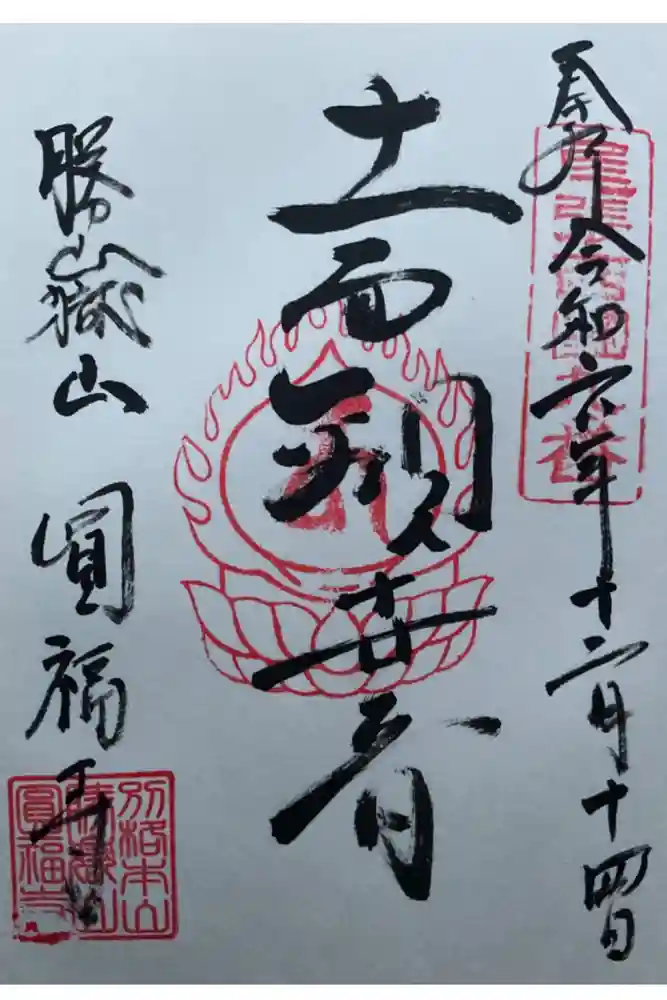 奉拝 令和六年十二月十四日
十一面観世音
勝嶽山 圓福寺
別格本山
勝嶽山
圓福寺